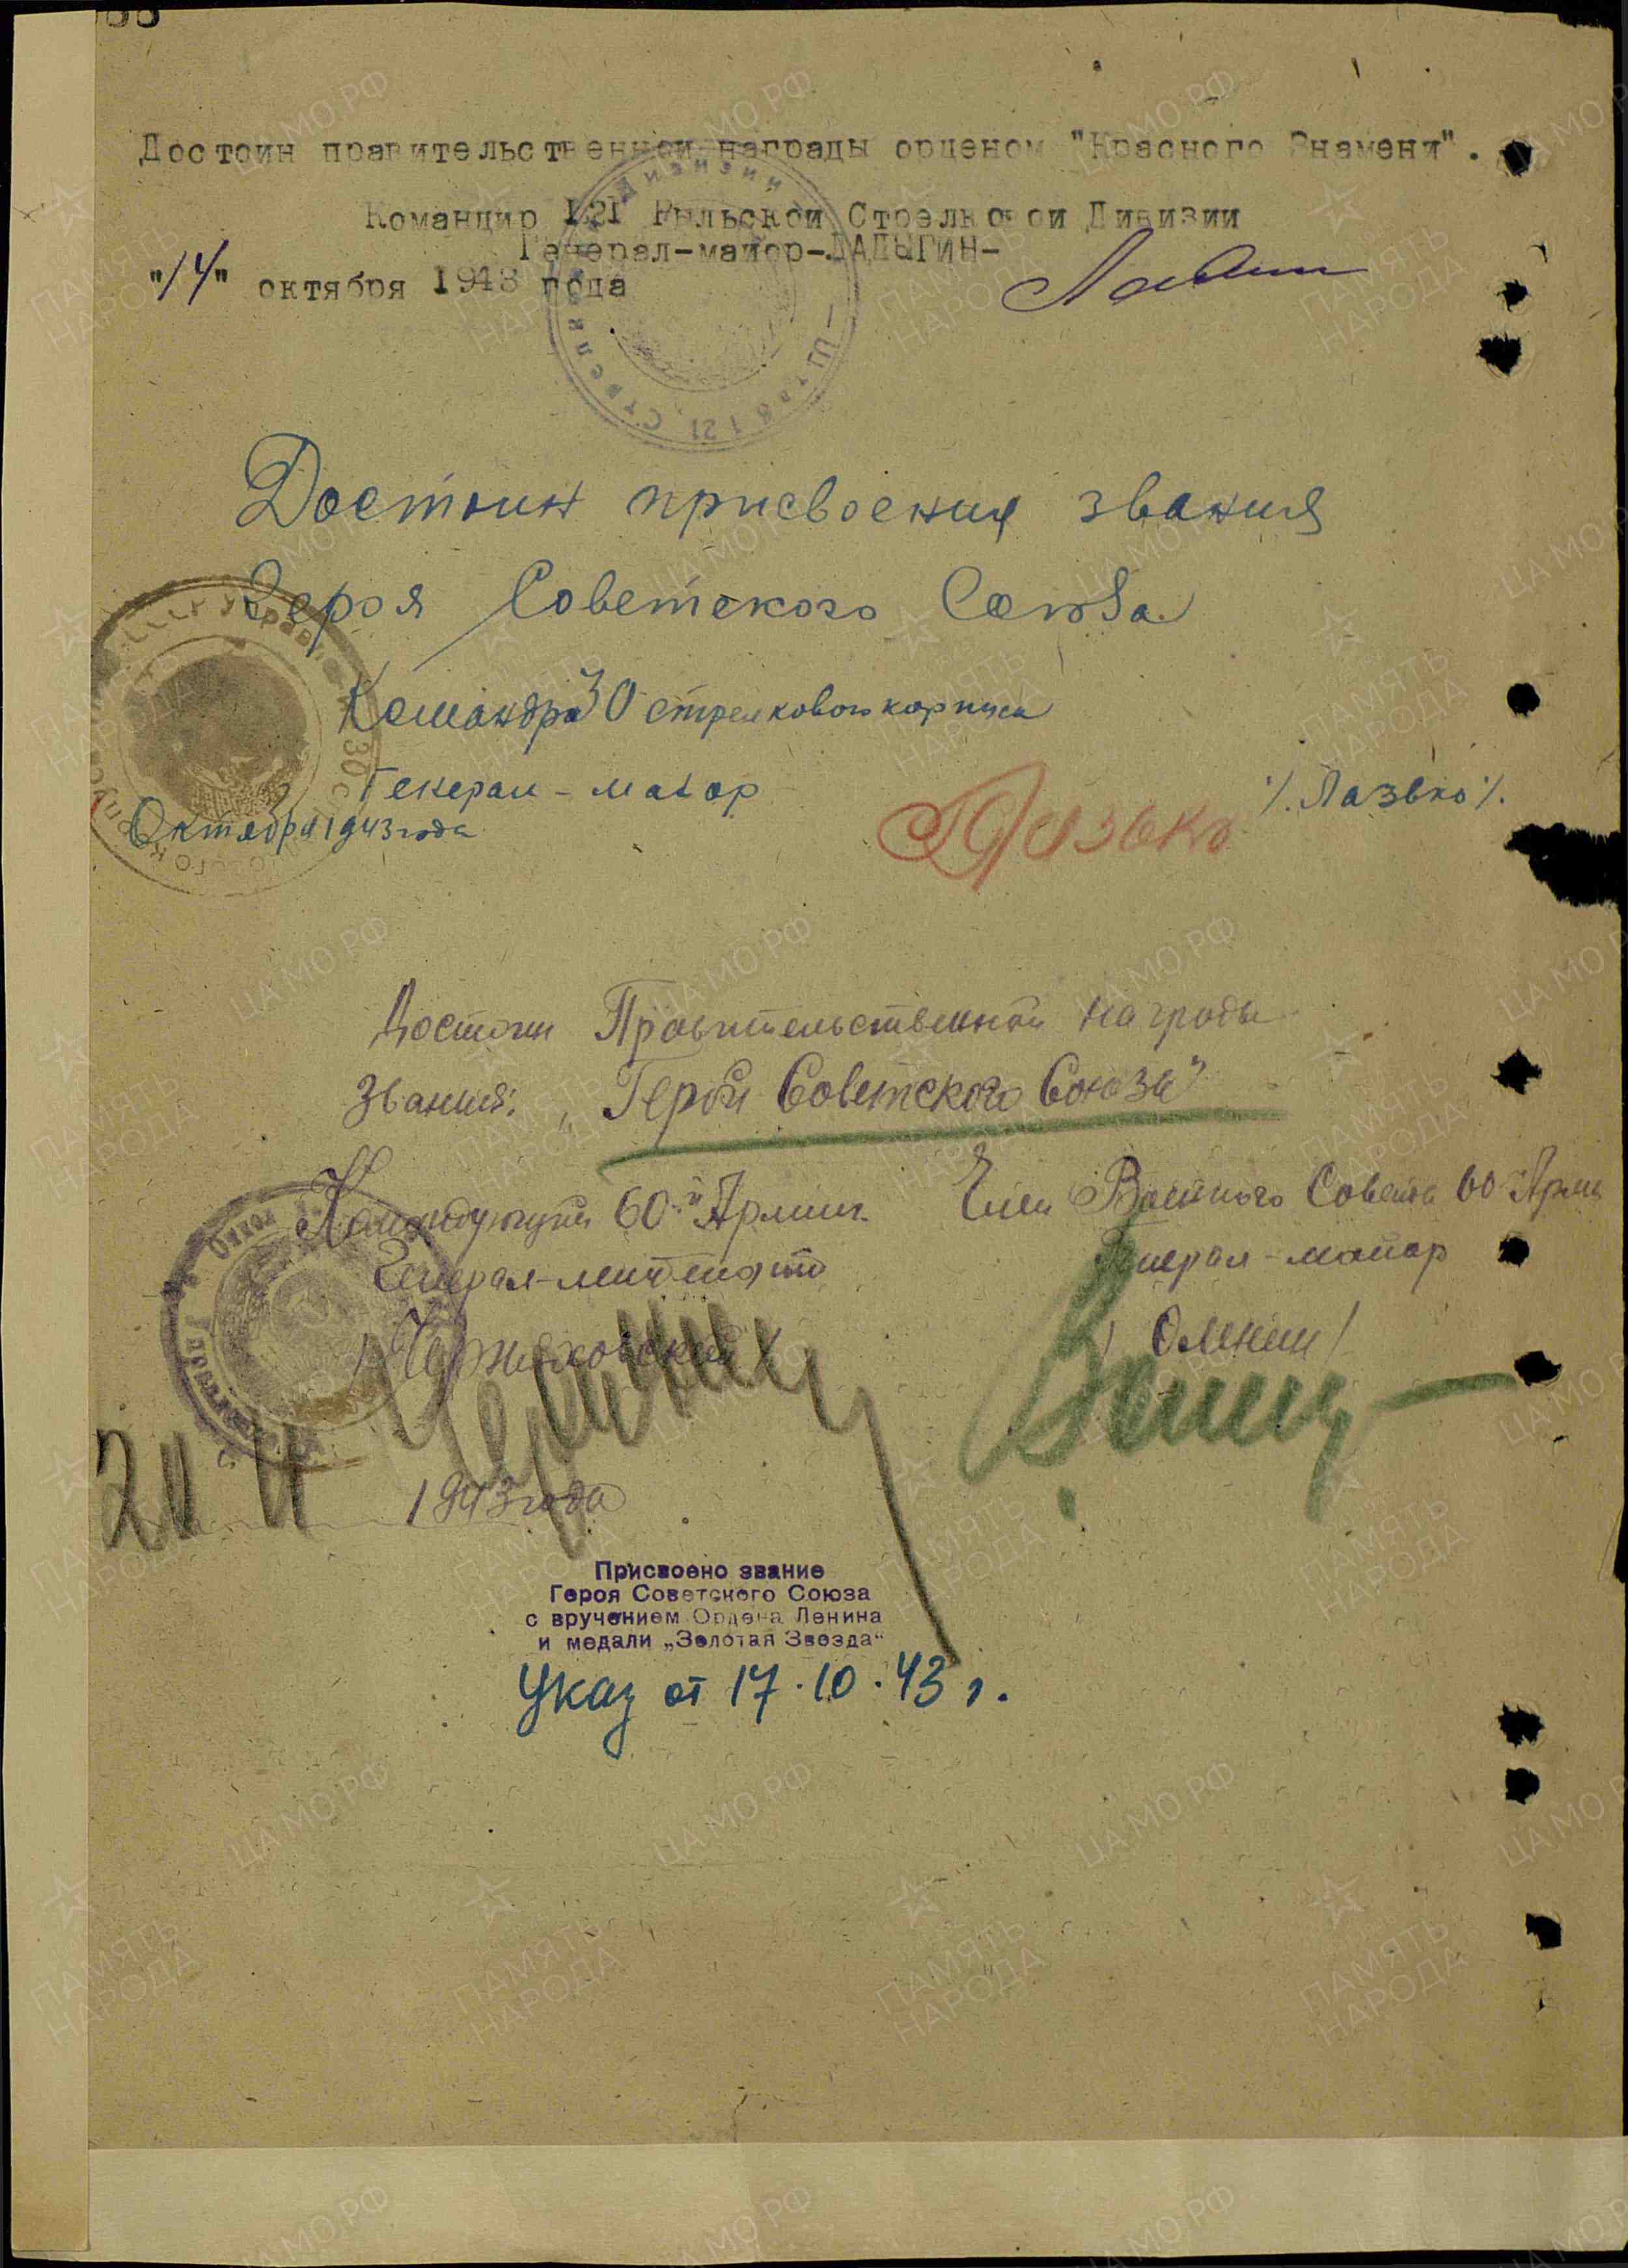 Достоин правительственной награды орденом "Красного Знамени".
Командир 121 Рыльской Стрелковой Дивизии
Генерал-майор-ЛАДЫГИН-
"14" октября 1943 года
Достоин присвоения звания
Героя Советского Союза.
Командир 30 стрелкового корпуса
Генерал-майор
/.Лазько/.
Лазько
Октября 1943 года
Достоин Правительственной награды
Звания: „Герой Советского Союза"
Командующий 60-й Армии
Член Военного Совета 60 Арми
Генерал-лейтенант
Генерал-майор
/Черняховский/
/Оленин/
1943 года
Присвоено звание
Героя Советского Союза
с вручением Ордена Ленина
и медали „Золотая Звезда“
Указ от 17.10.43 г.
ПАМЯТЬ НАРОДА
ЦА МО.РФ